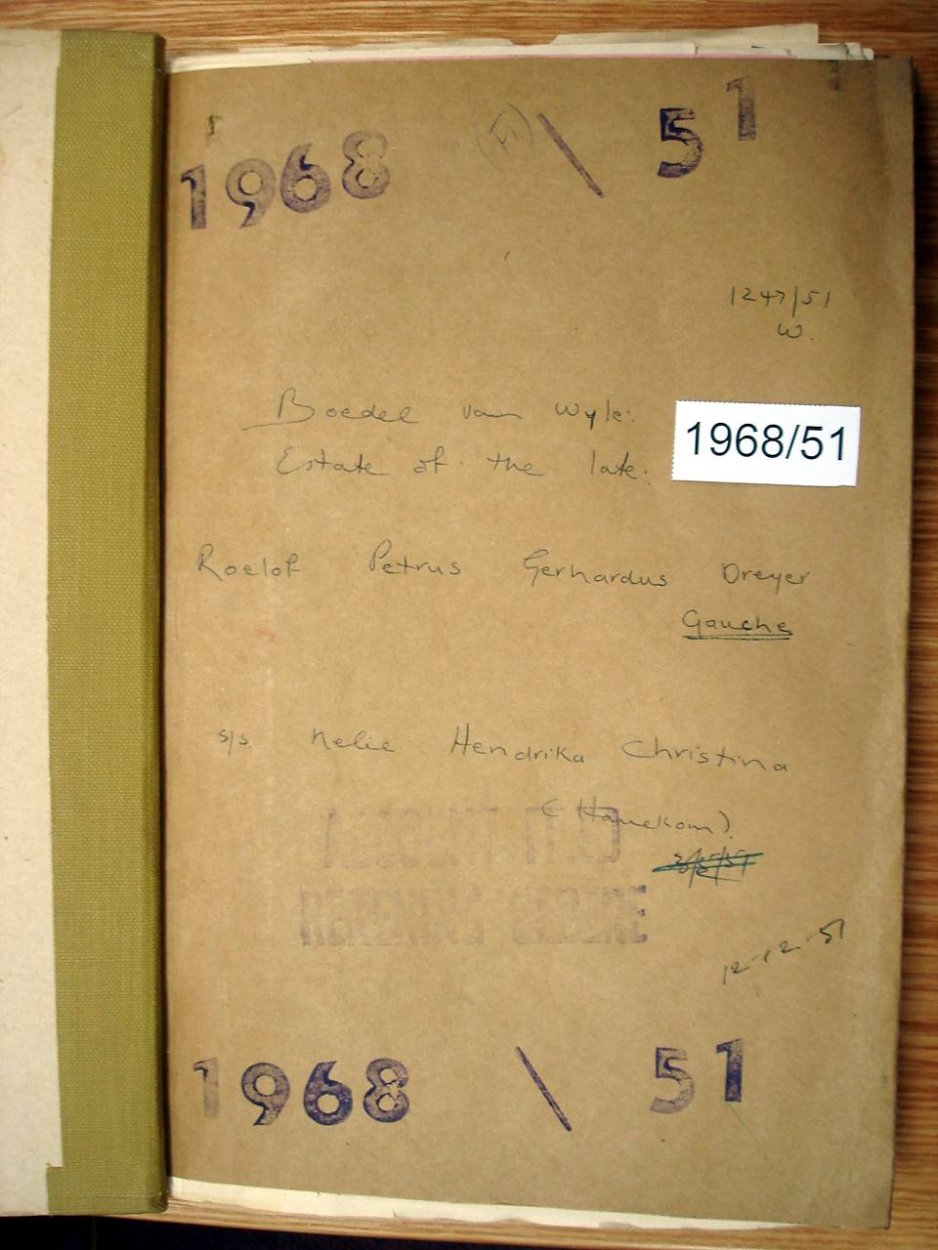 1968 \ 51
1247/51
W.
Boedel van Wyle:
1968/51
Estate of the late:
Roelof Petrus Gerhardus Dreyer
Gauche
s/s. Nelie Hendrika Christina
(Hanekom).
12-12-51
1968 \ 51